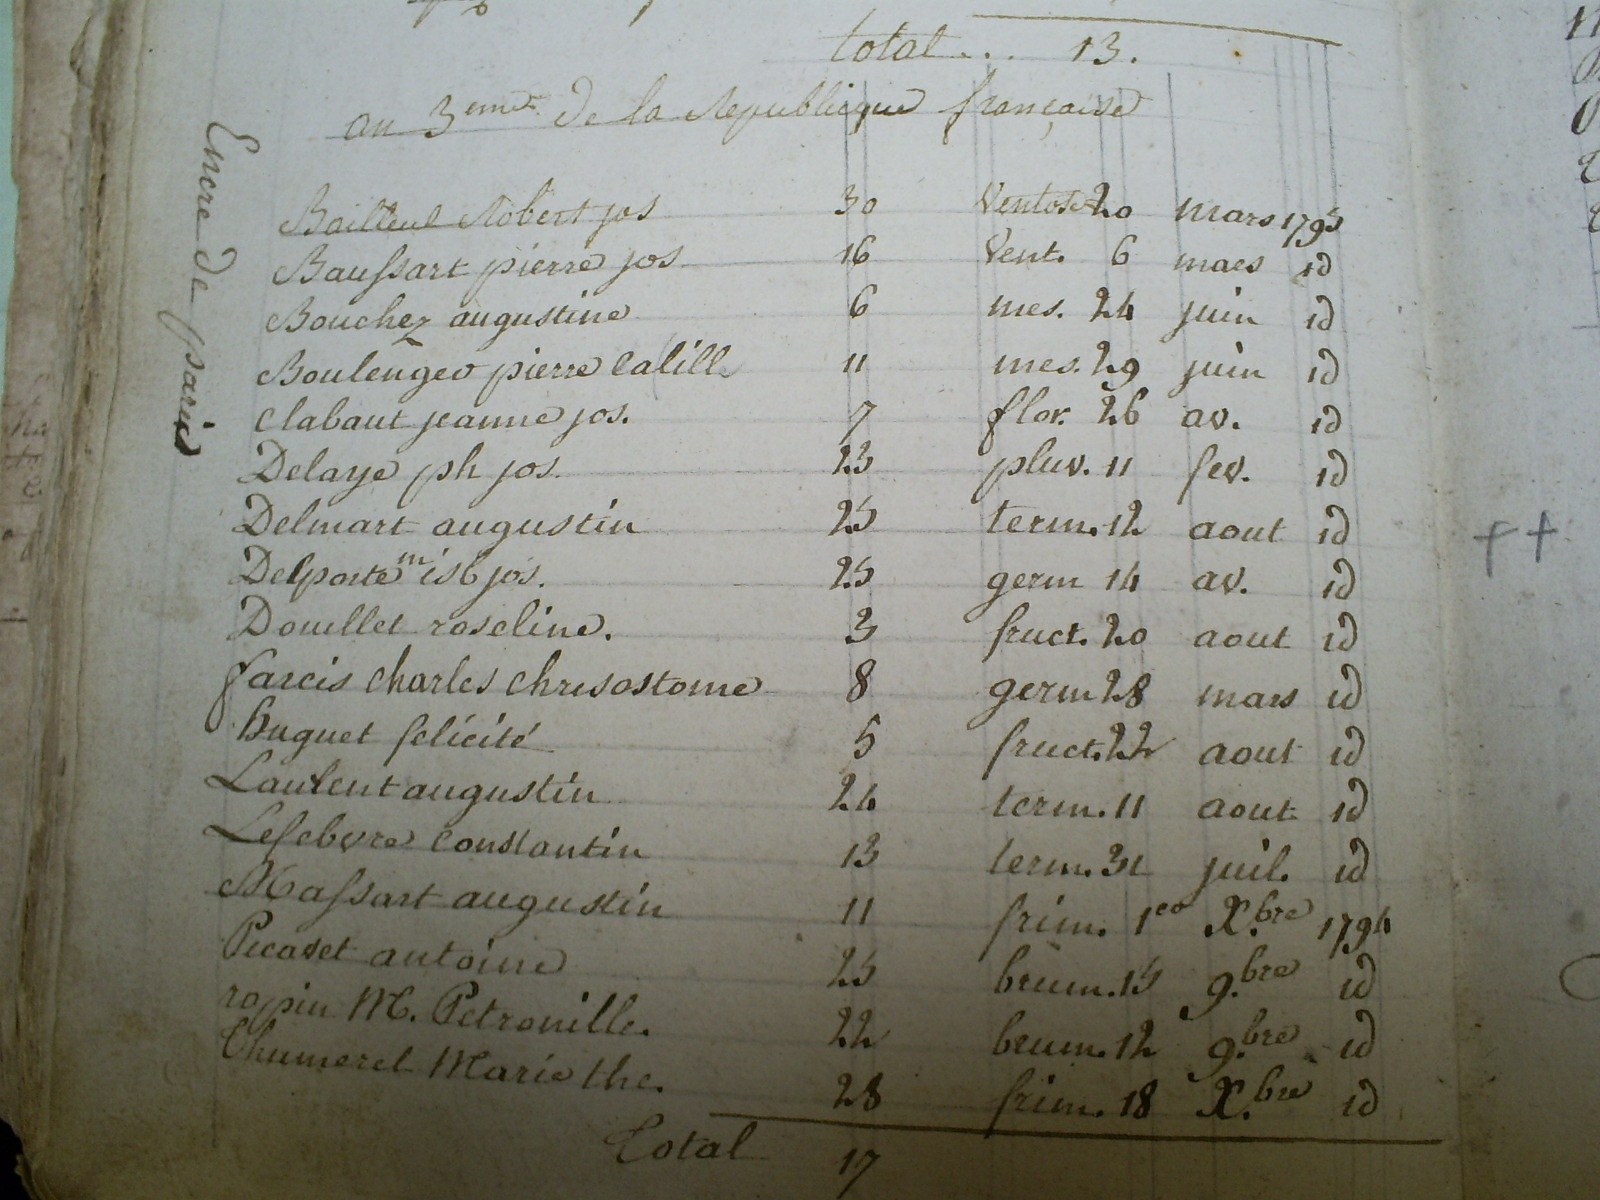 total... 13.
an 3eme de la Republique française
Encre de paris
Bailleul Robert jos 30 Ventose 20 mars 1795
Baussart pierre jos 16 Vent. 6 maes id
Bouchez augustine 6 mes. 24 juin id
Boulenger pierre Calill 11 mes. 29 juin id
Clabaut jeanne jos. 7 flor. 26 av. id
Delaye ph jos. 23 pluv. 11 fev. id
Delmart augustin 25 term. 12 aout id
Delporte m isb jos. 25 germ 14 av. id
Douillet roseline. 3 fruct. 20 aout id
farcis Charles Chrisostome 8 germ 28 mars id
huguet felicité 5 fruct. 22 aout id
Laulent augustin 24 term. 11 aout id
Lefebvre Constantin 13 term. 31 juil. id
Massart augustin 11 frim. 1er X.bre 1794
Picavet antoine 25 brum. 15 9.bre id
ropin M. Petronille. 22 brum. 12 9.bre id
Thumerel Marie the. 28 frim. 18 X.bre id
Total 17
++